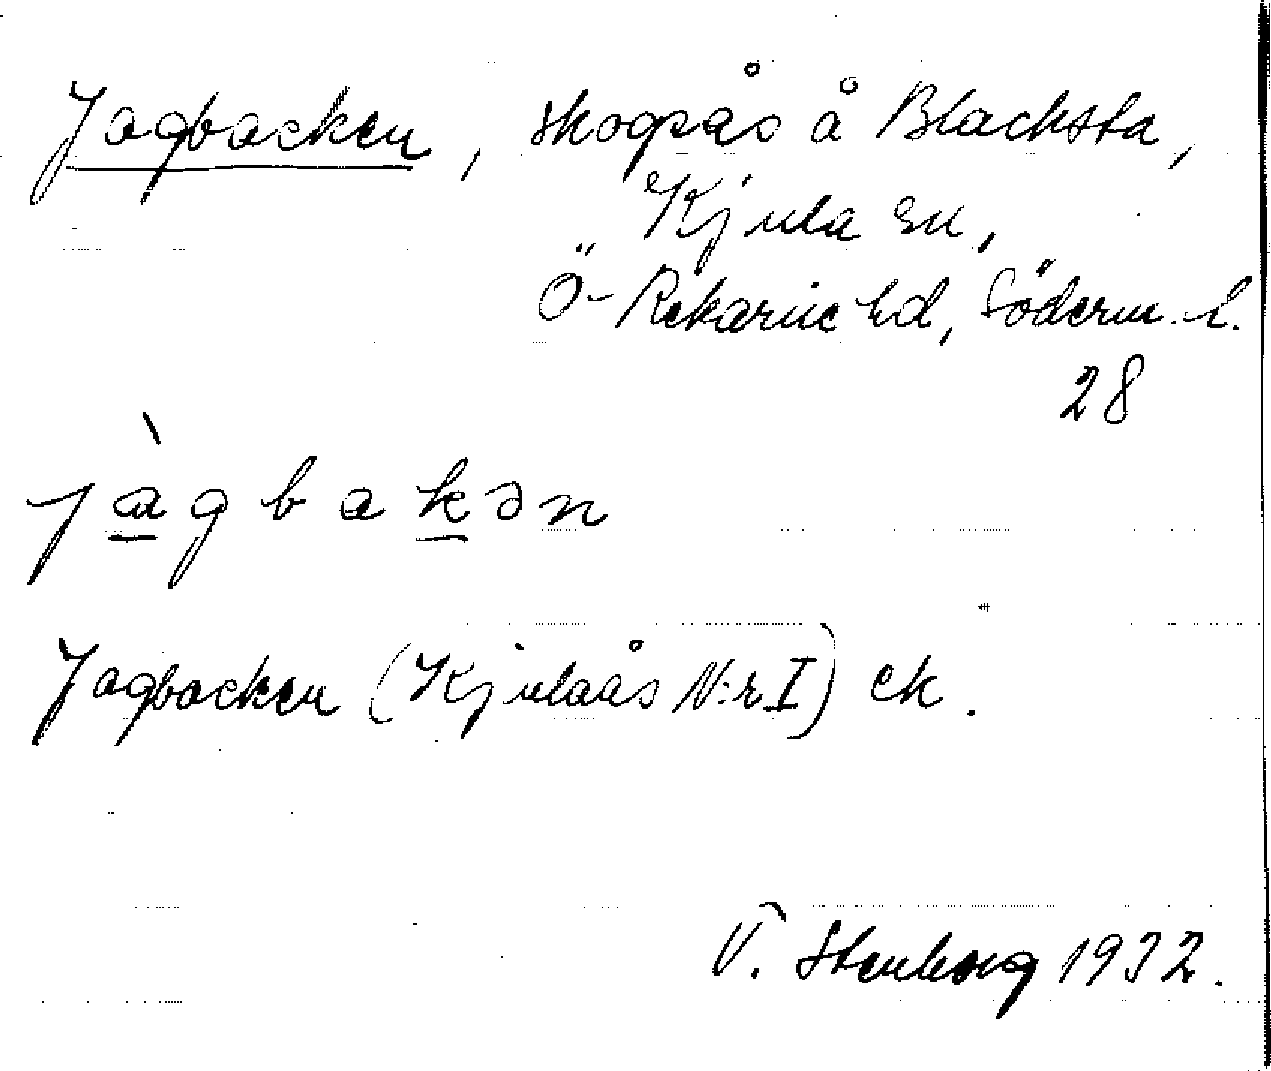 Jagbacken, skogsås å Blacksta,
Kjula sn,
Ö-Rekarne hd, Söderm. l.
28
jàgbakən
Jagbacken (Kjulaås N:r I) ek.
V. Stenborg 1932.